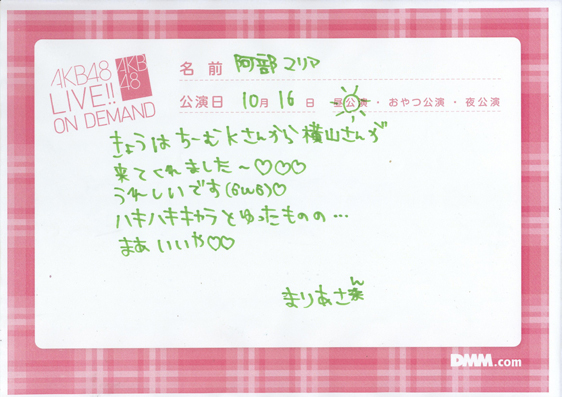 AKB48
LIVE!!
ON DEMAND
AKB
48
名前 阿部マリア
公演日 10月16日 昼公演・おやつ公演・夜公演
きょうはちーむKさんから横山さんが
来てくれました〜♡♡♡
うれしいです(6ω6)♡
ハキハキキャラとゆったものの…
まあいいや♡♡
まりあさん
DMM.com